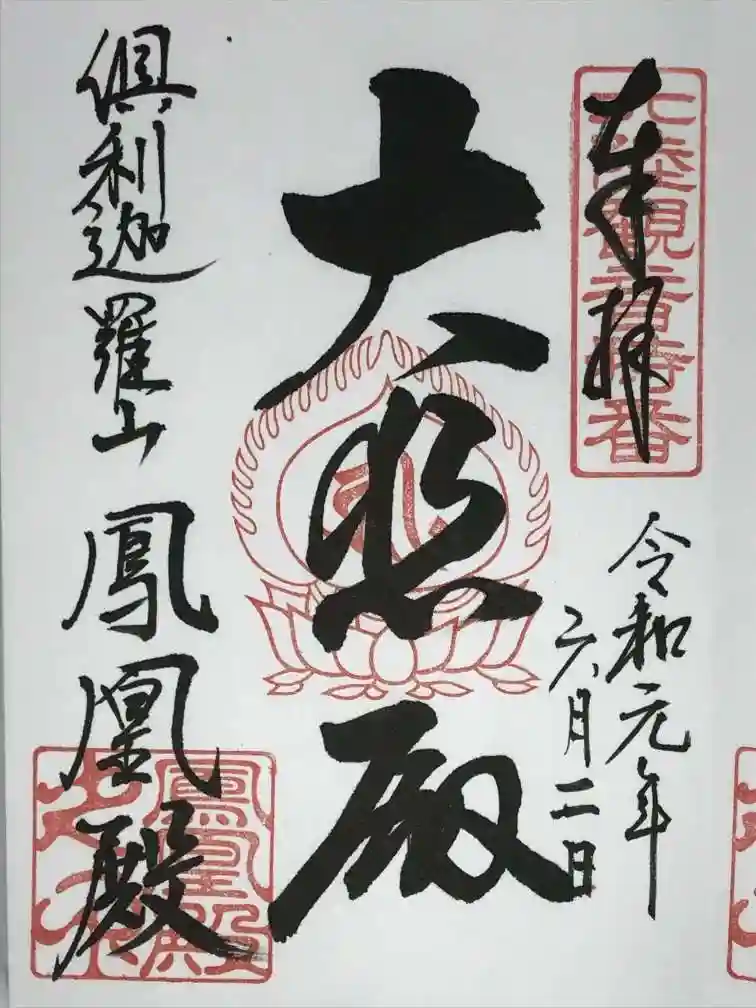 奉拝
北陸観音特番
令和元年
六月二日
大悲殿
倶利迦羅山 鳳凰殿
鳳凰殿